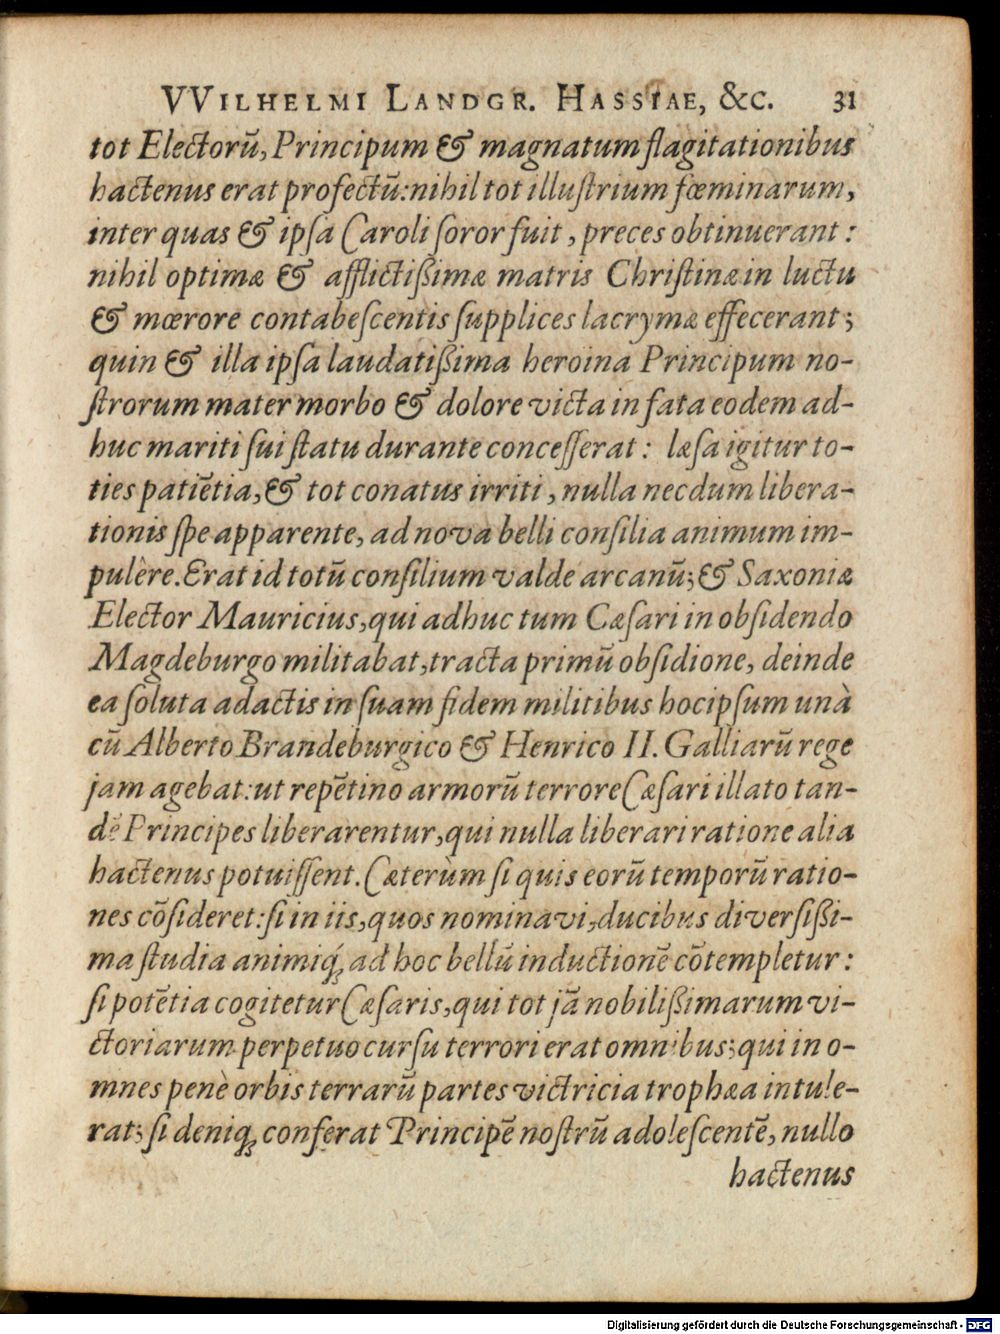 VVILHELMI LANDGR. HASSIAE, &C. 31
tot Electorũ, Principum & magnatum flagitationibus
hactenus erat profectũ: nihil tot illuſtrium fœminarum,
inter quas & ipſa Caroli ſoror fuit, preces obtinuerant:
nihil optimæ & afflictißimæ matris Chriſtinæ in luctu
& mœrore contabeſcentis ſupplices lacrymæ effecerant;
quin & illa ipſa laudatißima heroina Principum no-
ſtrorum mater morbo & dolore victa in fata eodem ad-
huc mariti ſui ſtatu durante conceſſerat: læſa igitur to-
ties patiẽtia, & tot conatus irriti, nulla necdum libera-
tionis ſpe apparente, ad nova belli conſilia animum im-
pulêre. Erat id totũ conſilium valde arcanũ; & Saxoniæ
Elector Mauricius, qui adhuc tum Cæſari in obſidendo
Magdeburgo militabat, tracta primũ obſidione, deinde
ea ſoluta adactis in ſuam fidem militibus hoc ipſum unà
cũ Alberto Brandeburgico & Henrico II. Galliarũ rege
jam agebat: ut repẽtino armorũ terrore Cæſari illato tan-
dẽ Principes liberarentur, qui nulla liberari ratione alia
hactenus potuiſſent. Cæterùm ſi quis eorũ temporũ ratio-
nes cõſideret: ſi in iis, quos nominavi, ducibus diverſißi-
ma ſtudia animiq́; ad hoc bellũ inductionẽ cõtempletur:
ſi potẽtia cogitetur Cæſaris, qui tot jã nobilißimarum vi-
ctoriarum perpetuo curſu terrori erat omnibus; qui in o-
mnes penè orbis terrarũ partes victricia trophæa intule-
rat; ſi deniq; conferat Principẽ noſtrũ adoleſcentẽ, nullo
hactenus
Digitalisierung gefördert durch die Deutsche Forschungsgemeinschaft - DFG